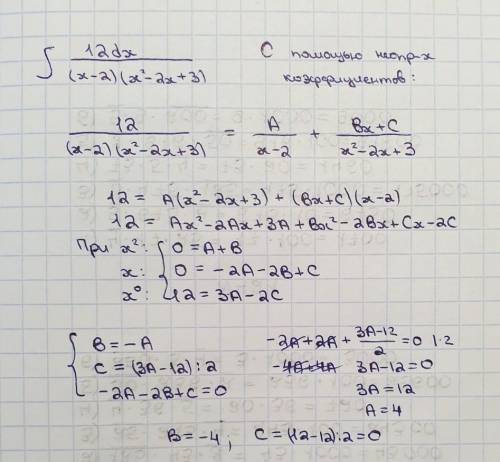 ∫ 12dx / (x-2)(x²-2x+3) С помощью неопр-х
коэффициентов:
12 / (x-2)(x²-2x+3) = A / x-2 + Bx+C / x²-2x+3
12 = A(x²-2x+3) + (Bx+C)(x-2)
12 = Ax²-2Ax+3A+Bx²-2Bx+Cx-2C
При x²: { 0 = A+B
x: 0 = -2A-2B+C
x⁰: 12 = 3A-2C
{ B = -A
C = (3A-12):2
-2A-2B+C=0
-2A+2A + 3A-12 / 2 = 0 |·2
-4A+4A 3A-12=0
3A=12
A=4
B=-4; C=(12-12):2=0